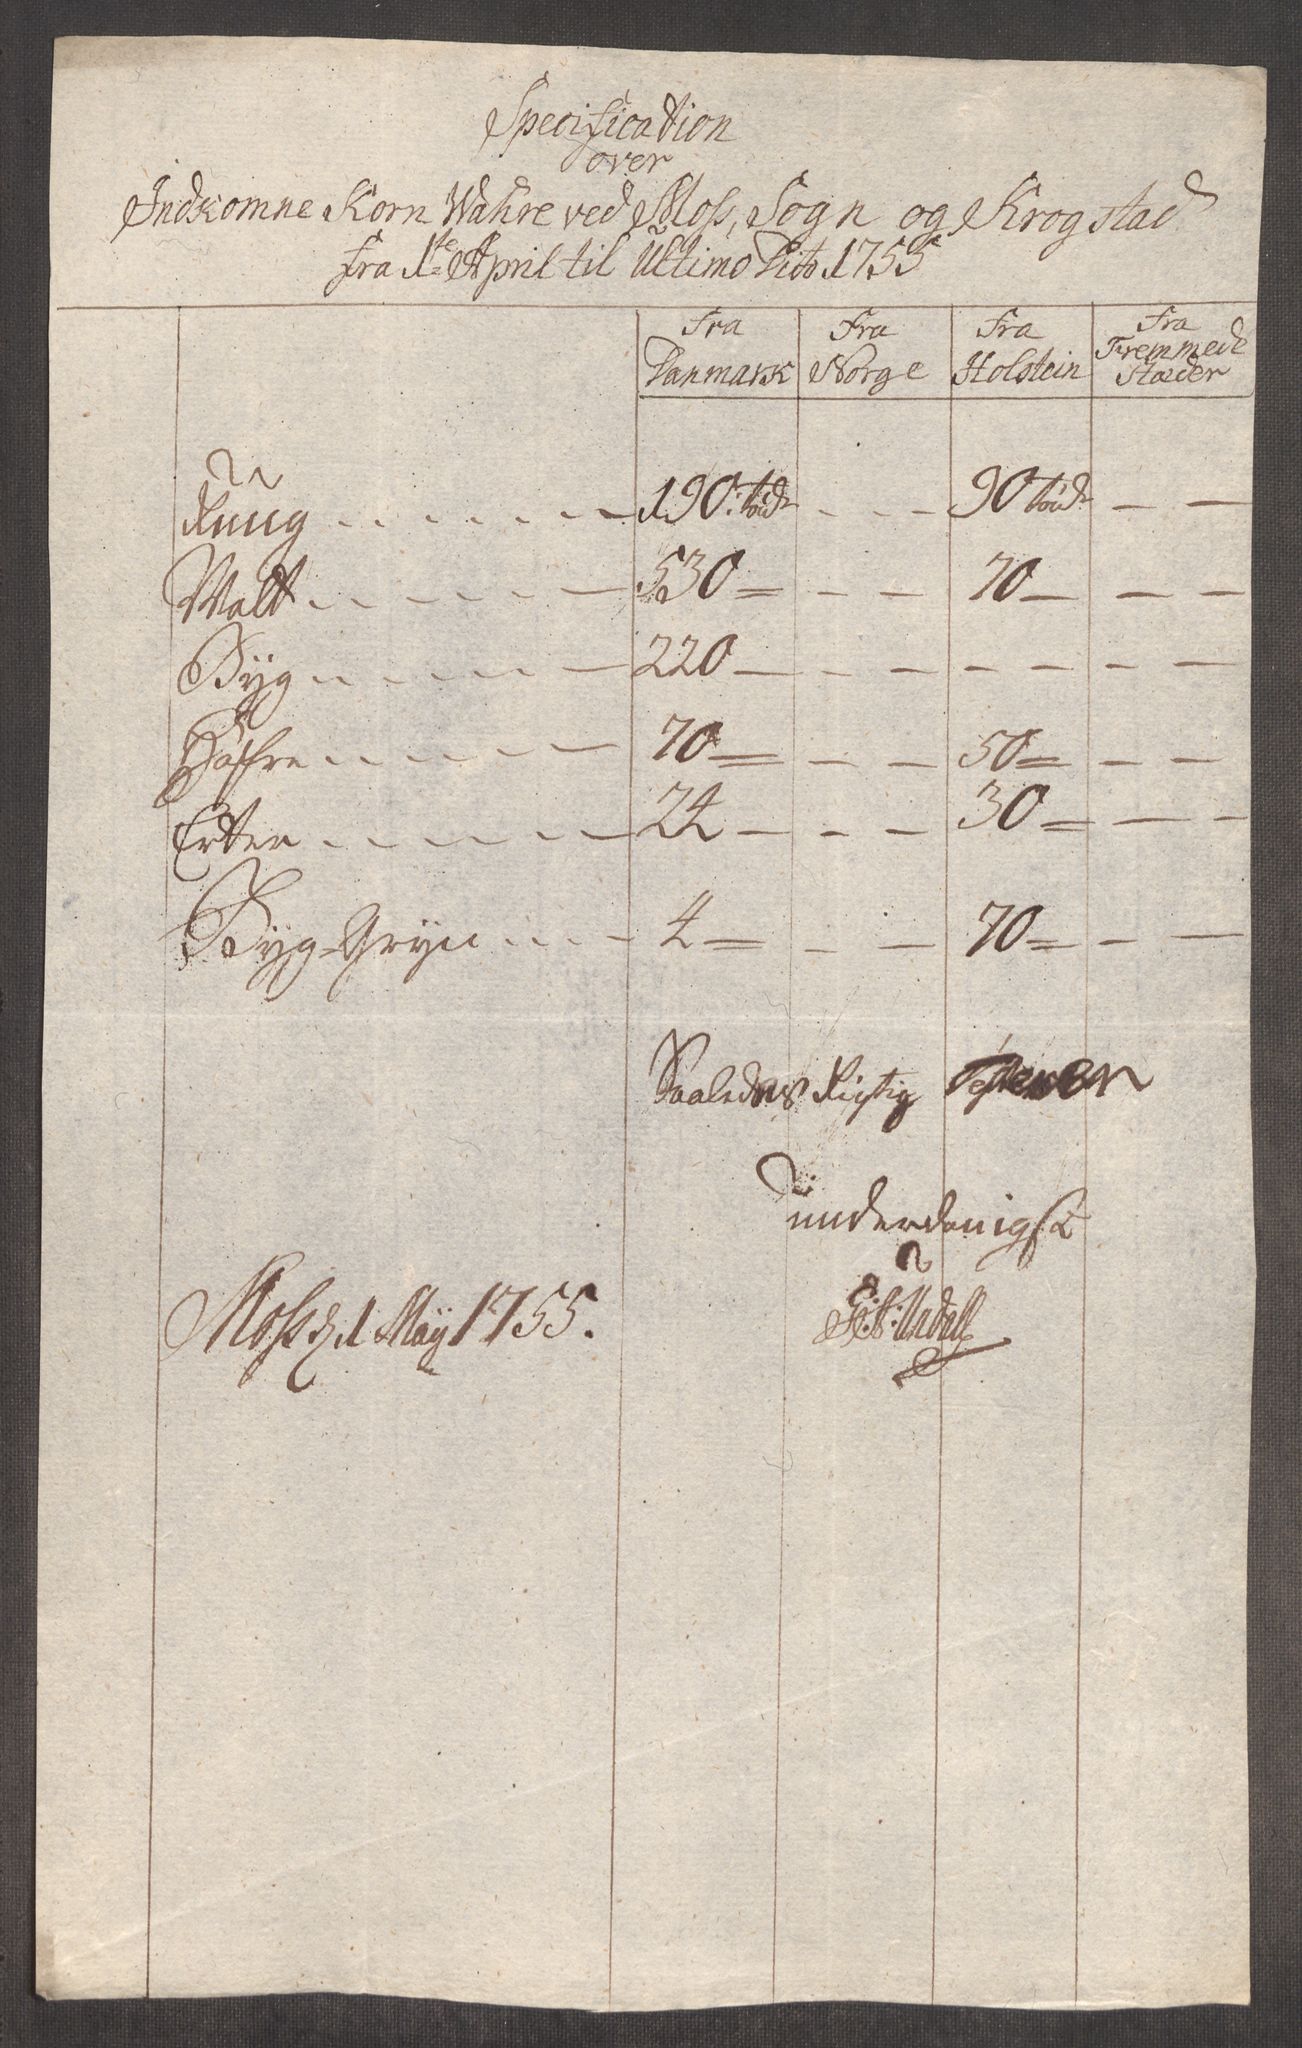 Specification
over
Indkomne Korn Wahre ved Moss, Sogn og Krogstad
fra 1te April til Ultimo Dito 1755
Fra Danmark | Fra Norge | Fra Holstein | Fra Fremmede Stæder
Rüüg . . . . . . 190: tönd | - - | 90 tönd | - -
Malt . . . . . . 530 = | - - | 70 - | - -
Byg . . . . . . 220 - | - - | - - | - -
Hafre . . . . . . 70 = | - - | 50 = | - -
Erter . . . . . . 24 - | - - | 30 = | - -
Byg-Gryn . . . . 4 = | - - | 70 = | - -
Saaledes Rigtig
underdanigst
Moss d 1 May 1755.